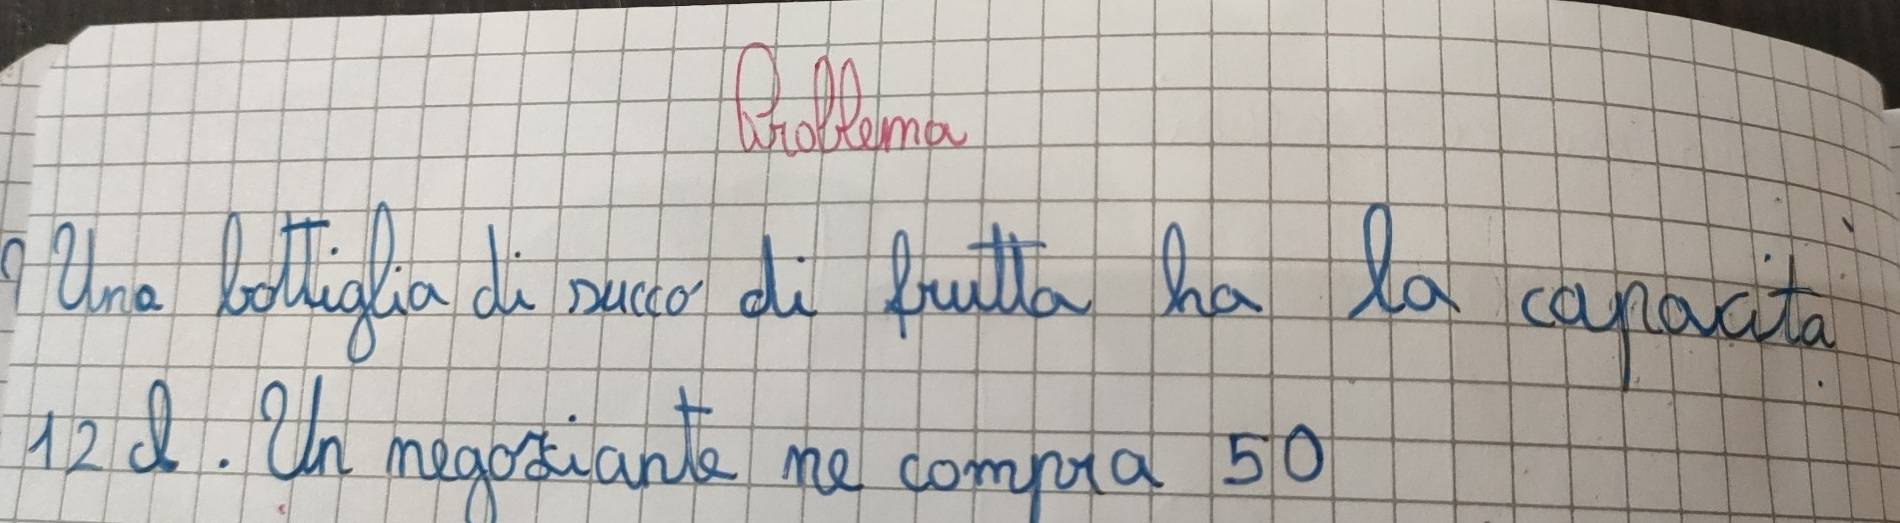 Problema
Una bottiglia di succo di frutta ha la capacità
12 l. Un negoziante ne compra 50